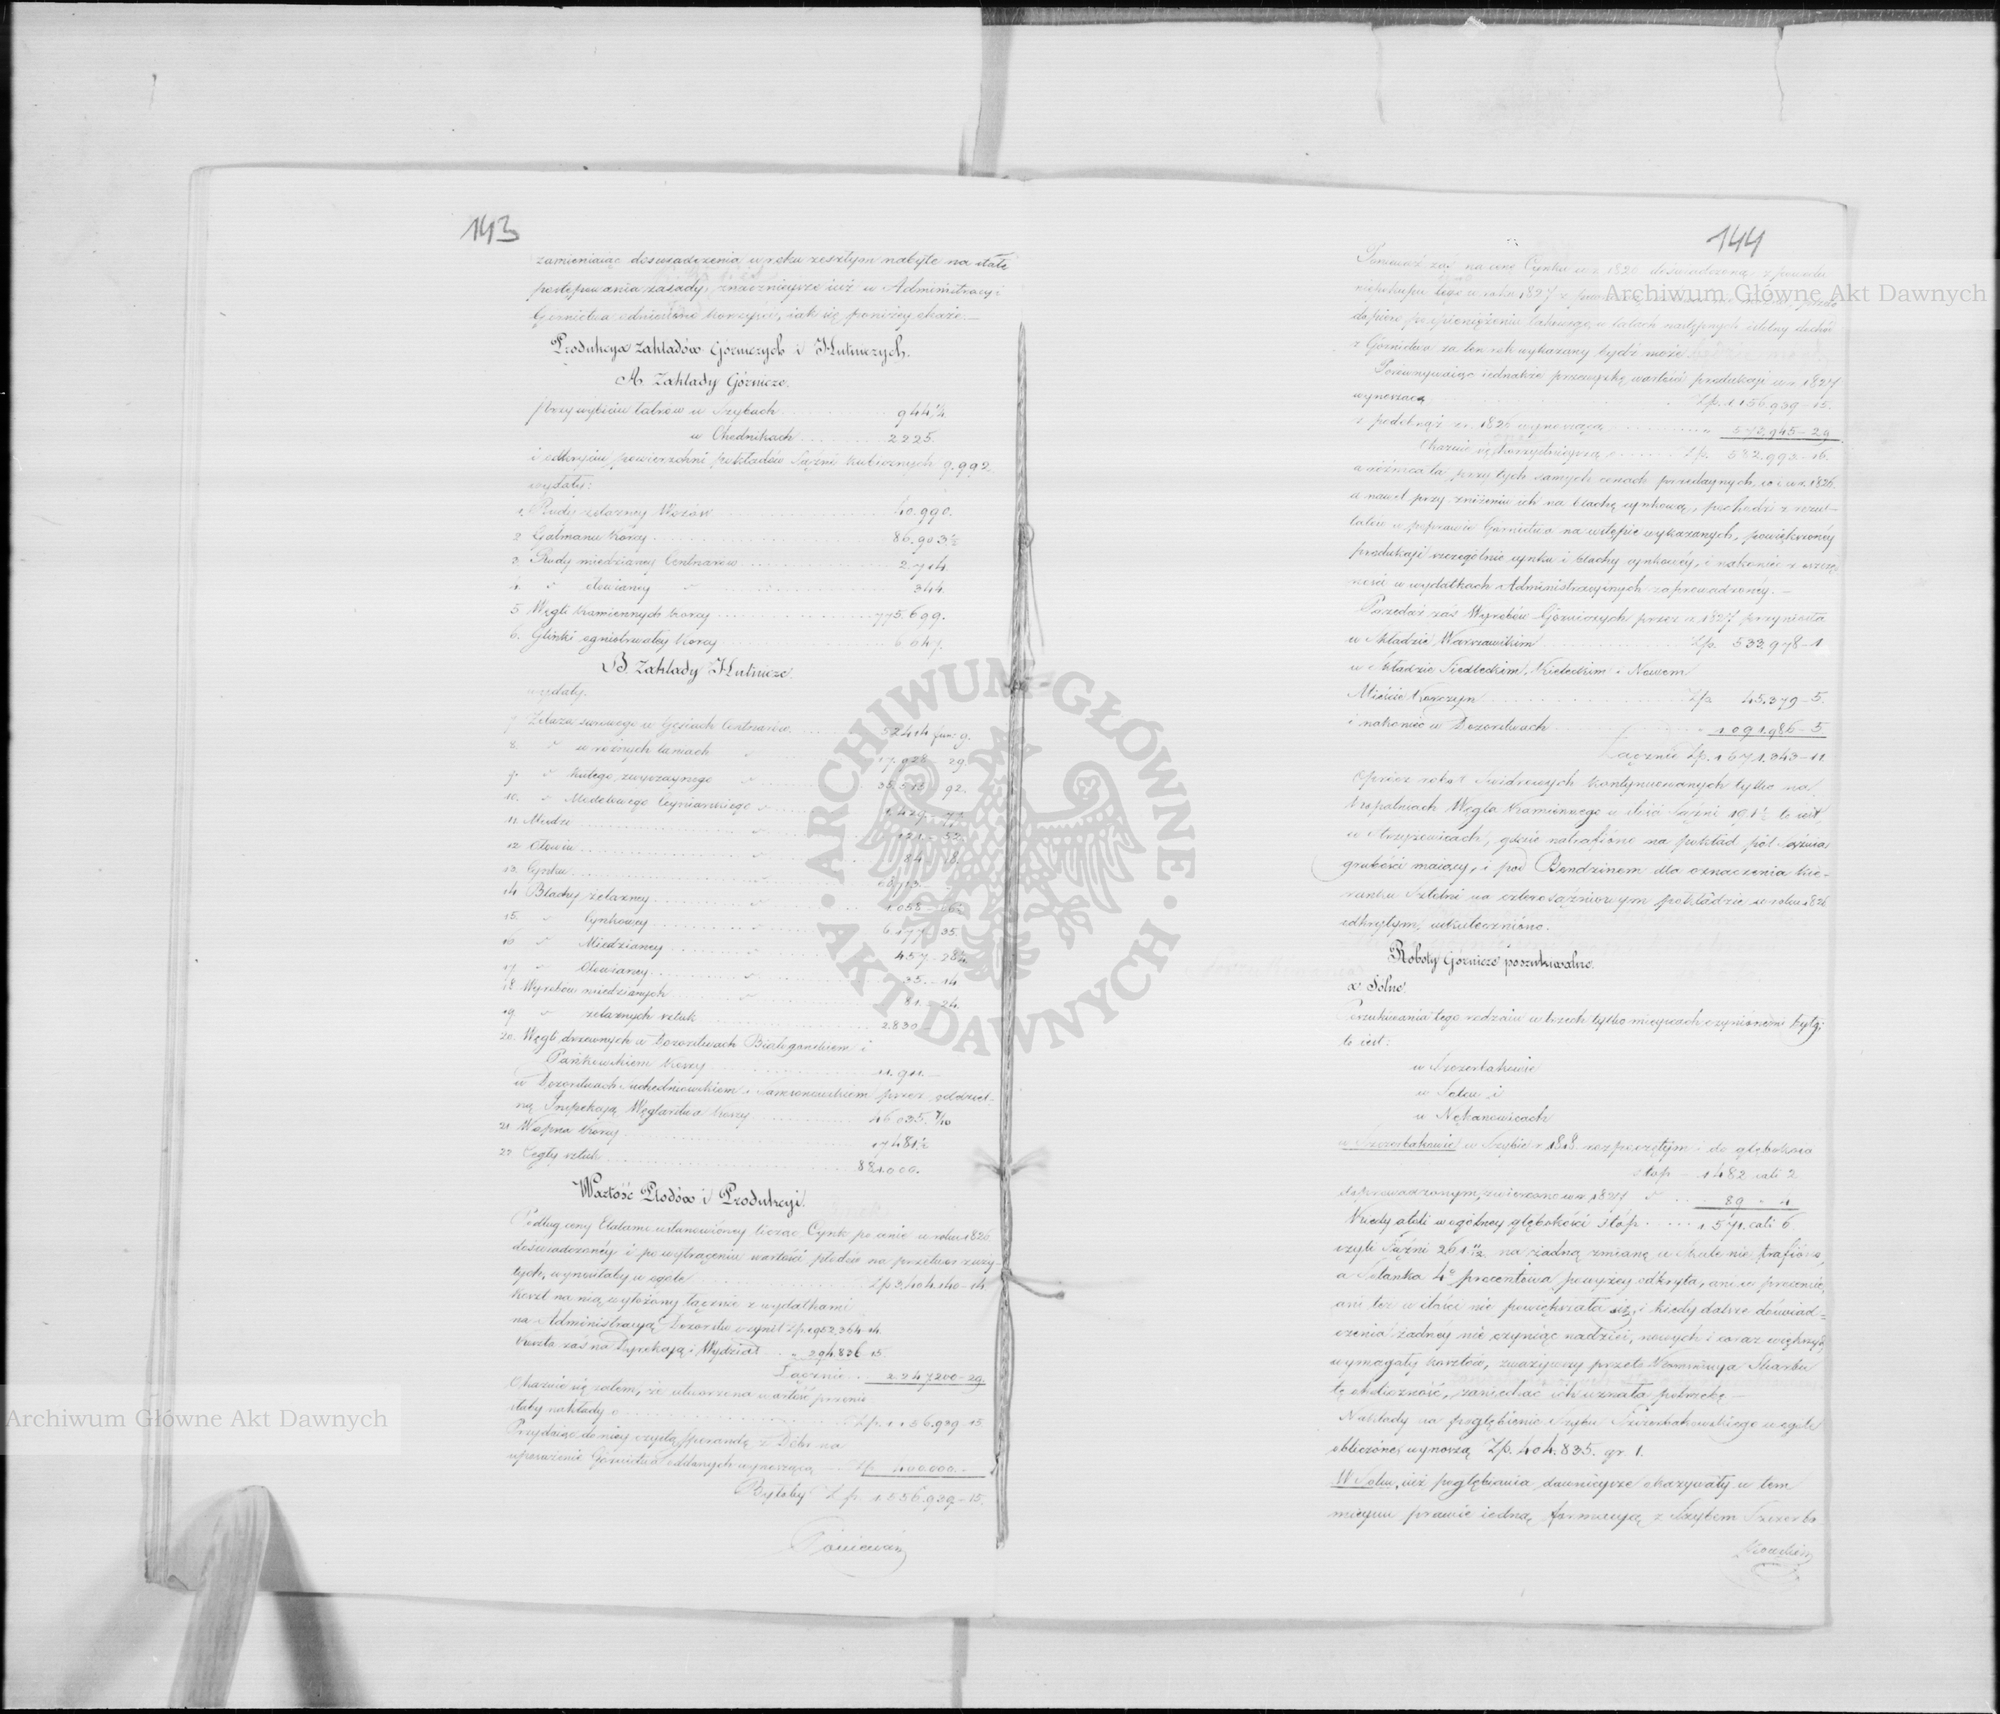 143
zamieniaiąc doświadczenia w roku zeszłym nabyte na stałe
postępowania zasady, znacznieysze iuż w Administracyi
Górnictwa odniesiono korzyści, iak się poniżey okaże.—
Produkcya Zakładów Górniczych i Hutniczych.
A. Zakłady Górnicze.
przy wybiciu latrów w Szybach 944.
w Chodnikach 2225.
i odkryciu powierzchni pokładów Sążni kubicznych 9.992.
wydały:
1. Rudy żelazney Wozów 40.990.
2. Galmanu Korcy 86.903½
3. Rudy miedzianey Centnarów 2704.
4. " ołowianey " 344.
5. Węgli kamiennych korcy 775.699.
6. Glinki ogniotrwałey Korcy 6047.
B. Zakłady Hutnicze.
wydały.
7. Żelaza surowego w Gęsiach Centnarów 52414 fun: 9.
8. " w różnych laniach " 17.028 – 29
9. " kutego zwyczaynego " 35.513 – 92.
10. " Modelowego Cyniarskiego "
11. Miedzi " 121 – 53
12. Ołowiu " 84 – 18.
13. Cynku
14. Blachy żelazney " 1.058
15. " Cynkowey " 6.177 – 35.
16. " Miedzianey " 457 – 28
17. " Ołowianey 35. – 14
18. Wyrobów miedzianych " 81. – 24.
19. " żelaznych sztuk 2.830 –
20. Węgli drzewnych w Dozorstwach Białogońskiem i
Pańkowskiem Korcy 11.911.—
w Dozorstwach Suchedniowskiem i Samsonowskiem przez oddziel-
ną Inspekcyą Węglarstwa Korcy 46.035. 7/10
21. Wapna Korcy 17481½
22. Cegły sztuk 881000.
Wartość Płodów i Produkcyi.
Podług ceny Etatami ustanowioney licząc Cynk po cenie w roku 1826
doświadczoney i po wytrąceniu wartości płodów na przetwor zuży-
tych, wynosiłaby w ogóle Zp. 3.404.140 – 14
Koszt na nią wyłożony łącznie z wydatkami
na Administracyą Dozorstw czynił Zp. 1952.364 – 14.
Koszta zaś na Dyrekcyą i Wydział " 294.836 – 15
Łącznie 2.247.200 – 29.
Okazuie się zatem, że utworzona wartość przenio-
słaby nakłady o Zp. 1.156.939 – 15
Przydaiąc do niey czystą Sperandę z Dóbr na
uposażenie Górnictwa oddanych wynoszącą Zp. 400.000. –
Byłoby Zp. 1.556.939 – 15.
Ponieważ
144
Ponieważ zaś na cenę Cynku w r. 1826 doświadczoną z powodu
niepokupu tego w roku 1827
dopiero po spieniężeniu takowego, w latach następnych istotny dochód
z Górnictwa za ten rok wykazany bydź może.
Porównywaiąc iednakże przewyżkę wartości produkcyi w r. 1827
wynoszącą Zp. 1.156.939 – 15.
z podobnąż z r. 1826 wynoszącą " 573.945 – 29
Okazuie się korzystnieyszą o Zp. 582.993 – 16.
a różnica ta przy tych samych cenach przedaynych, co i w r. 1826.
a nawet przy zniżeniu ich na blachę cynkową, pochodzi z rezul-
tatów w poprawie Górnictwa na wstępie wykazanych, powiększoney
produkcyi szczególnie cynku i blachy cynkowey, i nakoniec z oszczę-
ności w wydatkach Administracyinych zaprowadzoney. –
Przedaż zaś Wyrobów Górniczych przez r. 1827 przyniosła
w Składzie Warszawskim Zp. 533.978 – 1.
w Składzie Siedleckim, Kieleckim i Nowem
Mieście Korczyn Zp. 45.379 – 5.
i nakoniec w Dozorstwach " 1.091.986 – 5
Łącznie Zp. 1.671.343 – 11.
Oprócz robót Świdrowych kontynuowanych tylko na
kopalniach Węgla Kamiennego w ilości Sążni 191½ to iest
w Strzyżowicach, gdzie natrafiono na pokład pół Sążnia
grubości maiący, i pod Bendzinem dla oznaczenia kie-
runku Sztolni na czterosążniowym pokładzie w roku 1826
odkrytym, uskuteczniono.
Roboty Górnicze poszukiwalne.
α. Solne.
Poszukiwania tego rodzaiu w trzech tylko mieyscach czynionemi były:
to iest:
w Szczerbakowie
w Solcu i
w Nękanowicach
w Szczerbakowie w Szybie r. 1818. rozpoczętym i do głębokości
stóp 1482 cali 2
doprowadzonym, zwiercono w r. 1827 " 89 " 4
Kiedy atoli w ogólney głębokości stóp 1571. cali 6.
czyli Sążni 261 na żadną zmianę w Skale nie trafiono,
a Solanka 4° procentowa powyżey odkryta, ani w procencie,
ani też w ilości nie powiększała się, i kiedy dalsze doświad-
czenia żadney nie czyniąc nadziei, nowych i coraz większych
wymagały kosztów, zważywszy przeto Kommissya Skarbu
tę okoliczność, zaniechać ich uznała potrzebę –
Nakłady na pogłębienie Szybu Szczerbakowskiego w ogóle
obliczone, wynoszą Zp. 404.835. gr. 1.
W Solcu, iuż pogłębiania dawnieysze okazywały w tem
mieyscu prawie iedną formacyą z Szybem Szczerba
kowskim
ARCHIWUM GŁÓWNE AKT DAWNYCH
Archiwum Główne Akt Dawnych
Archiwum Główne Akt Dawnych